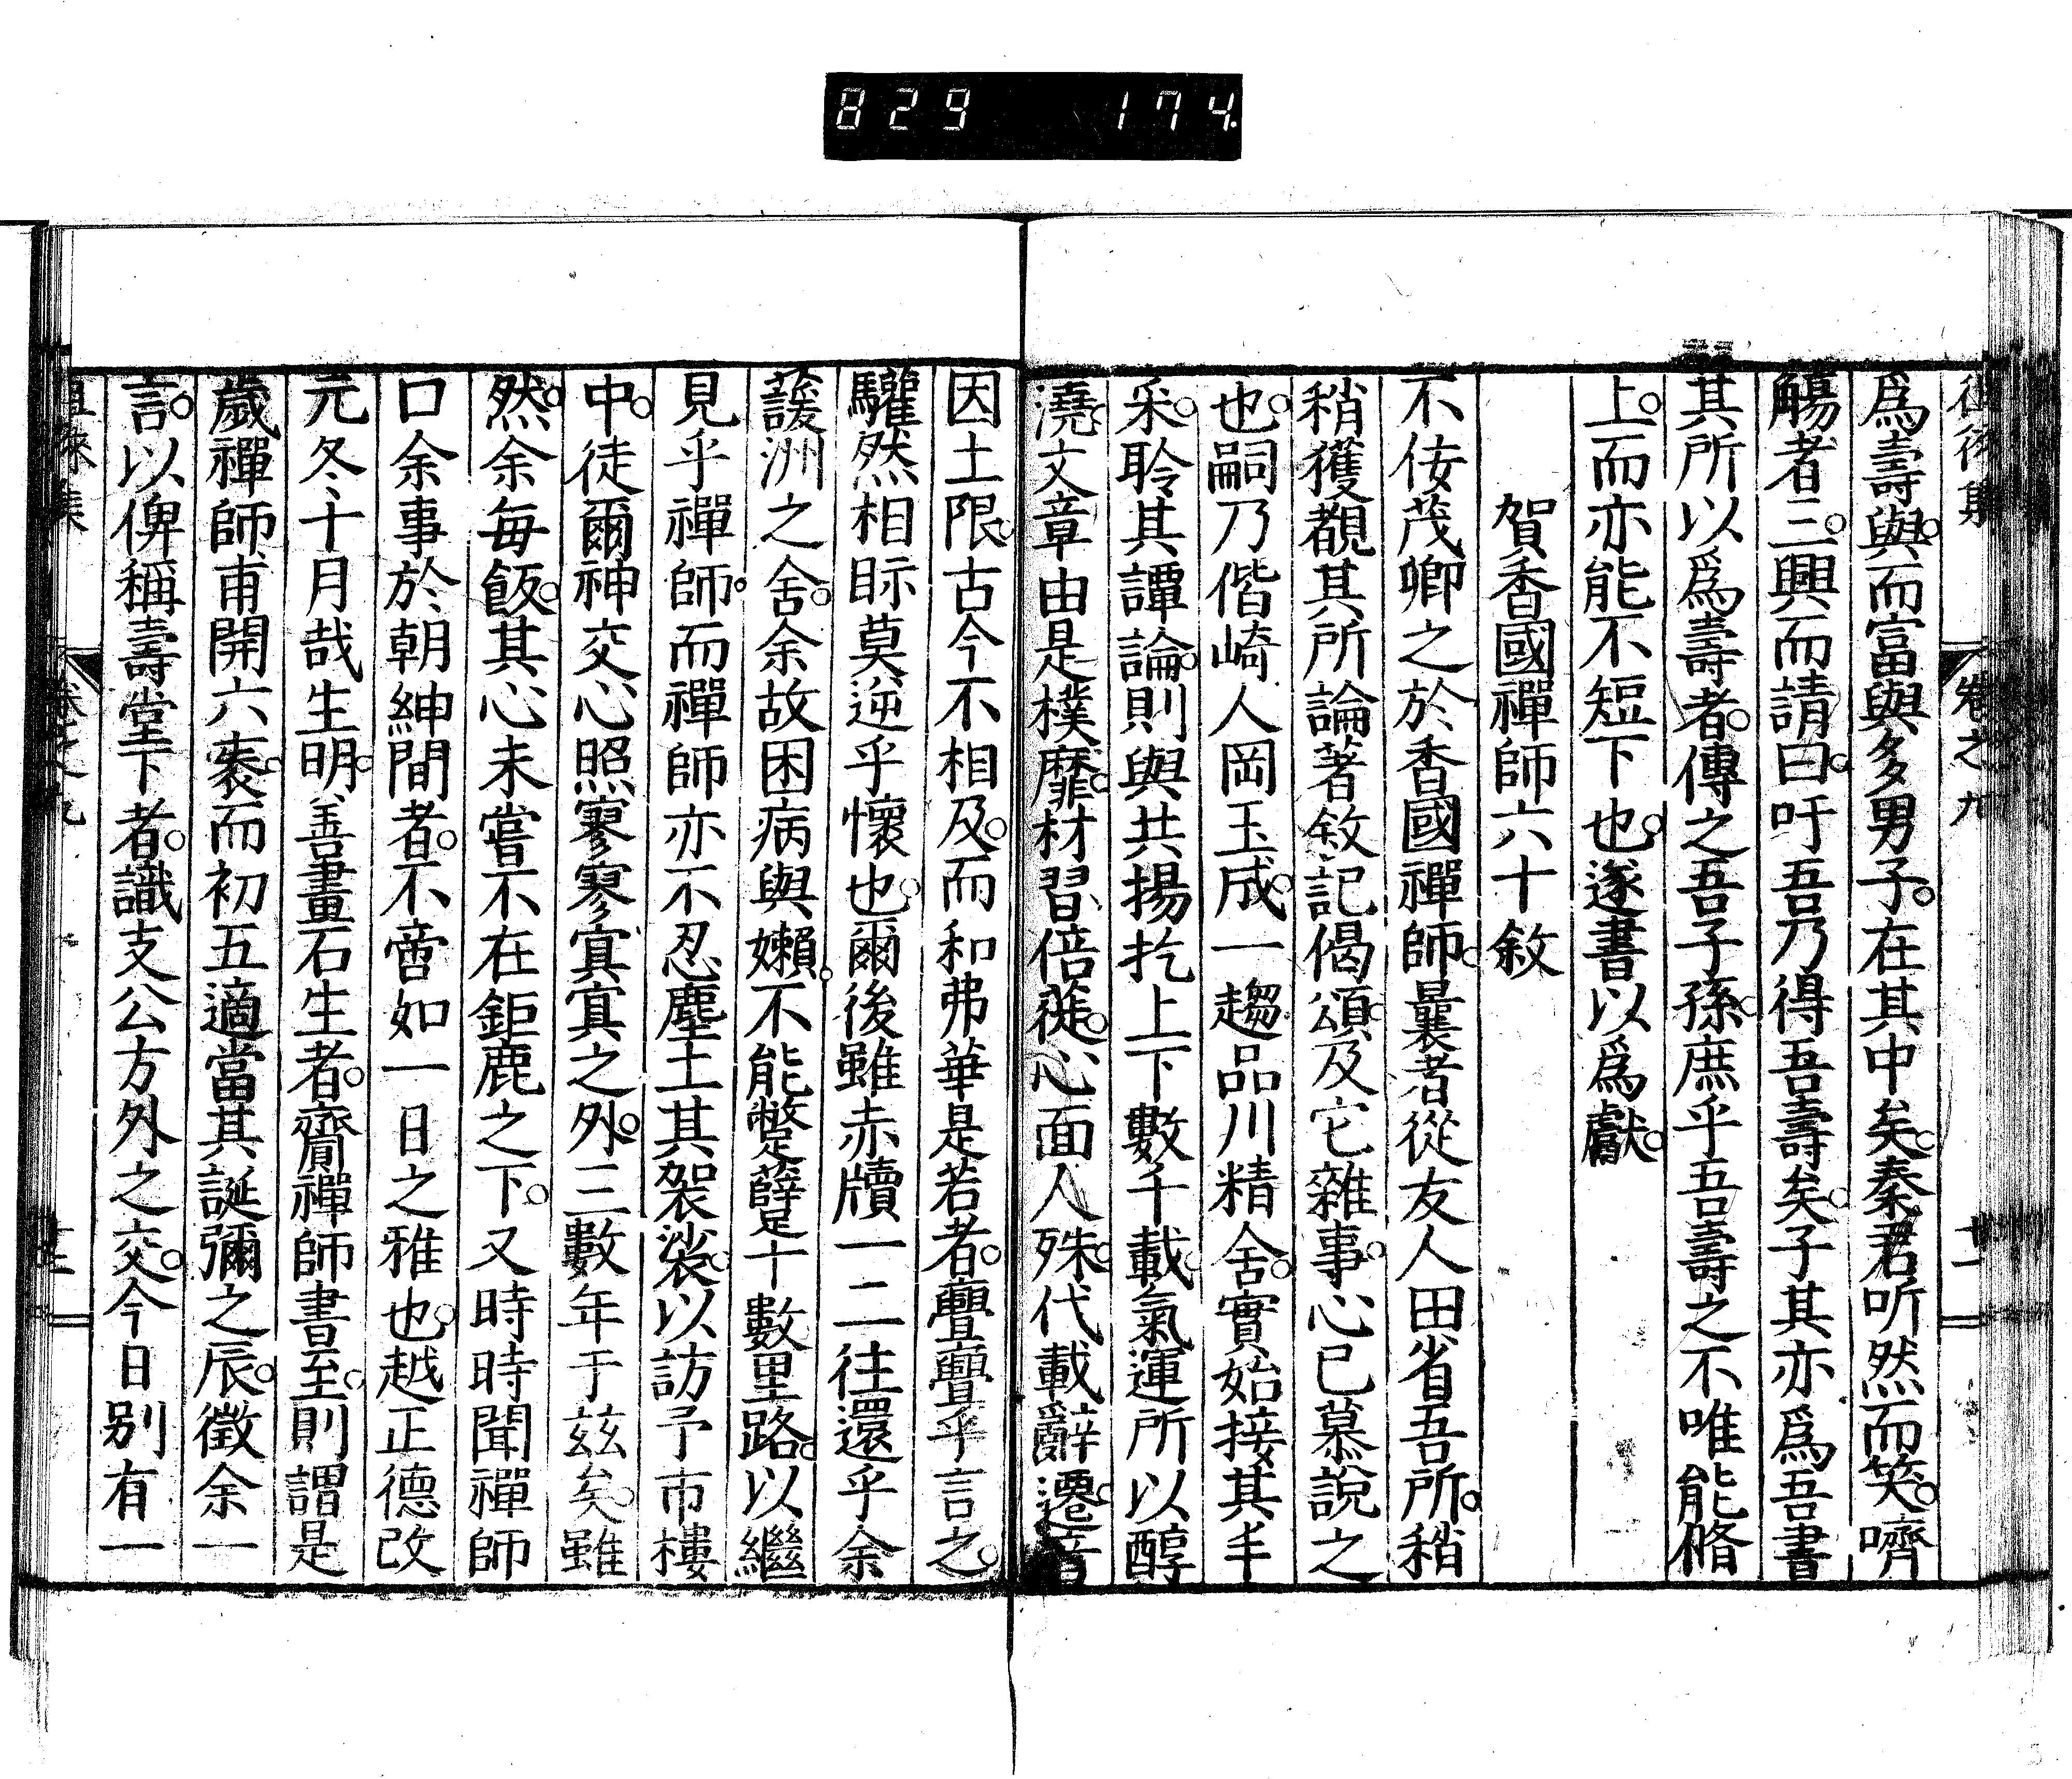 829 174
徂徠集 卷之九 十一
爲壽。與而富與多男子。在其中矣。秦君听然而笑。嚌
觴者三。興而請曰。吁吾乃得吾壽矣。子其亦爲吾書
其所以爲壽者。傳之吾子孫。庶乎吾壽之不唯能脩
上。而亦能不短下也。遂書以爲獻。
賀香國禪師六十敘
不佞茂卿之於香國禪師。曩者從友人田省吾所。稍
稍獲覩其所論著敘記偈頌。及它雜事。心已慕說之
也。嗣乃偕崎人岡玉成。一趨品川精舍。實始接其丰
采。聆其譚論。則與共揚扢上下數千載。氣運所以醇
澆。文章由是樸靡。材習倍蓰。心面人殊。代載辭遷。音
因土限。古今不相及。而和弗華是若者。亹亹乎言之。
驩然相眎莫逆乎懷也。爾後雖赤牘一二往還乎余
蘐洲之舍。余故困病與嬾。不能蹩躠十數里路。以繼
見乎禪師。而禪師亦不忍塵土其袈裟。以訪予市樓
中。徒爾神交心照寥寥寘寘之外。三數年于茲矣。雖
然。余每飯。其心未嘗不在鉅鹿之下。又時時聞禪師
口余事於朝紳間者。不啻如一日之雅也。越正德改
元冬十月哉生明。善畫石生者。齎禪師書至。則謂是
歲禪師甫開六袠。而初五適當其誕彌之辰。徵余一
言。以俾稱壽堂下者。識支公方外之交。今日別有一
徂徠集 卷之九 十二